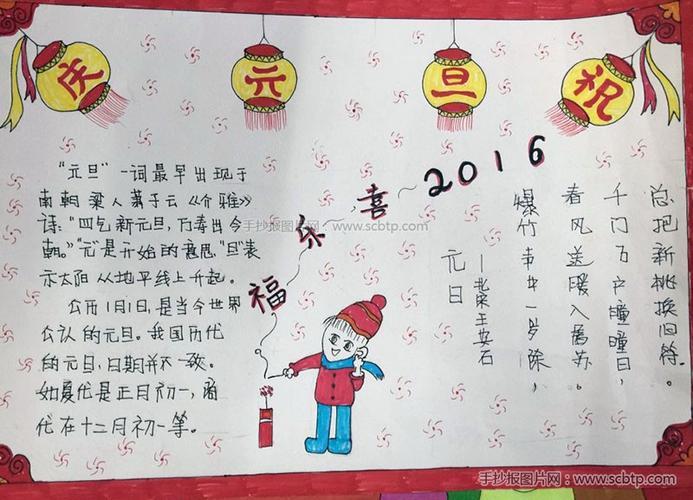 庆 元 旦 祝
"元旦"一词最早出现于
南朝梁人萧子云《介雅》
诗:"四气新元旦,万寿出今
朝。""元"是开始的意思,"旦"表
示太阳从地平线上升起。
公历1月1日,是当今世界
公认的元旦。我国历代
的元旦,日期并不一致。
如夏代是正月初一,商
代在十二月初一等。
福乐喜2016
元日
—北宋王安石
爆竹声中一岁除,
春风送暖入屠苏。
千门万户曈曈日,
总把新桃换旧符。
手抄报图片网:www.scbtp.com
手抄报图片网:www.scbtp.com